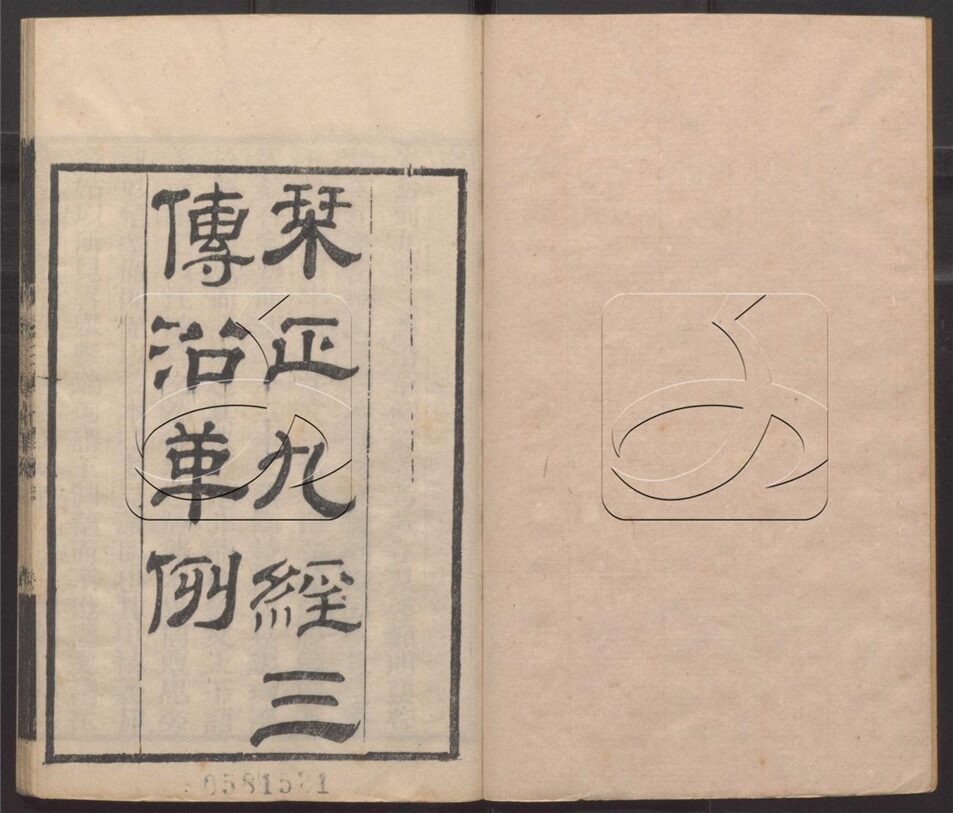 栞正九經三
傳沿革例
0581521